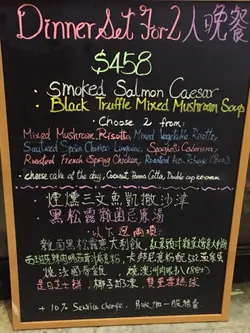 Dinner Set For 2 人晚餐
$458
• Smoked Salmon Caesar
• Black Truffle Mixed Mushroom Soup
• Choose 2 from:
Mixed Mushroom Risotto, Mixed Vegetable Risotto,
Linguine, Spaghetti Carbonara,
Roasted French Spring Chicken, Roasted
• cheese cake of the day, Coconut Panna Cotta, Double cup ice-cream
煙燻三文魚凱撒沙律
黑松露雜菌忌廉湯
以下選兩項:
雜菌黑松露意大利飯,
燒法國春雞, 燒澳洲
是日芝士餅, 椰子奶凍, 雙重雪糕球
+ 10% Service charge, 另收加一服務費